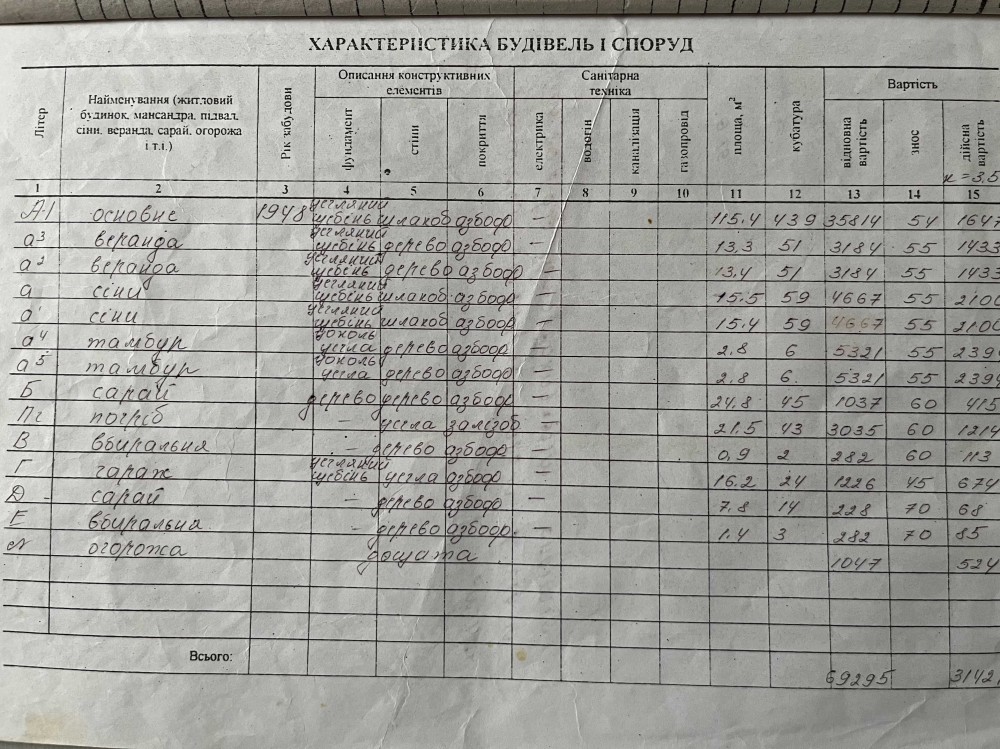 ХАРАКТЕРИСТИКА БУДІВЕЛЬ І СПОРУД
Літер
Найменування (житловий будинок, мансандра, підвал, сіни, веранда, сарай, огорожа і т.і.)
Рік забудови
Описання конструктивних елементів
фундамент
стіни
покриття
Санітарна техніка
електрика
водогін
каналізація
газопровід
площа, м²
кубатура
Вартість
відновна вартість
знос
дійсна вартість
к = 3,5
1 2 3 4 5 6 7 8 9 10 11 12 13 14 15
А-1 основне 1948 цегляний щебінь шлакоб азбоф — 115.4 439 35814 54 1647
а³ веранда цегляний щебінь дерево азбоф — 13,3 51 3184 55 1433
а² веранда цегляний щебінь дерево азбоф — 13,4 51 3184 55 1433
а сіни цегляний щебінь шлакоб азбоф — 15.5 59 4667 55 2100
а¹ сіни цегляний щебінь шлакоб азбоф — 15.4 59 4667 55 2100
а⁴ тамбур цоколь цегла дерево азбоф — 2.8 6 5321 55 239
а⁵ тамбур цоколь цегла дерево азбоф — 2.8 6. 5321 55 2394
Б сарай дерево дерево азбоф — 24,8 45 1037 60 415
Пг погріб — цегла залізоб — 21.5 43 3035 60 1214
В вбиральня — дерево азбоф — 0,9 2 282 60 113
Г гараж цегляний щебінь цегла азбоф — 16.2 24 1226 45 674
Д - сарай — дерево азбоф — 7,8 14 228 70 68
Е вбиральня - дерево азбоф. — 1.4 3 282 70 85
огорожа дощата 1047 524
Всього: 69295 3142